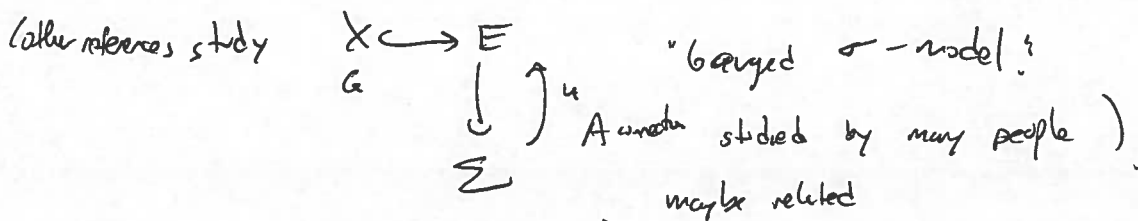 (other references study X ↪ E "Gauged σ-model"
G ↓ u
A connection studied by many people)
Σ maybe related